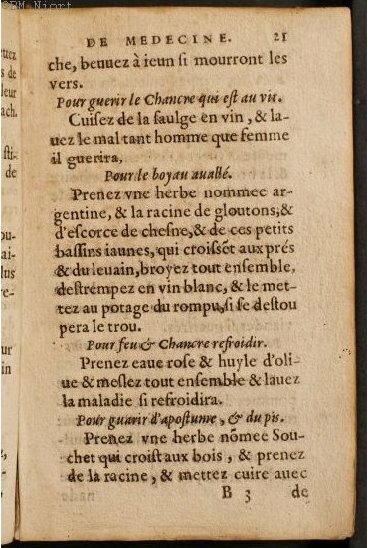 ©BM-Niort
DE MEDECINE. 21
che, beuuez à ieun si mourront les
vers.
Pour guerir le Chancre qui est au vit.
Cuisez de la saulge en vin, & la-
uez le mal tant homme que femme
il guerira.
Pour le boyau auallé.
Prenez vne herbe nommee ar-
gentine, & la racine de gloutons, &
d'escorce de chesne, & de ces petits
bassins iaunes, qui croissẽt aux prés
& du leuain, broyez tout ensemble,
destrempez en vin blanc, & le met-
tez au potage du rompu, si se destou
pera le trou.
Pour feu & Chancre refroidir.
Prenez eaue rose & huyle d'oli-
ue & meslez tout ensemble & lauez
la maladie si refroidira.
Pour guarir d'apostume, & du pis.
Prenez vne herbe nõmee Sou-
chet qui croist aux bois, & prenez
de la racine, & mettez cuire auec
B 3 de